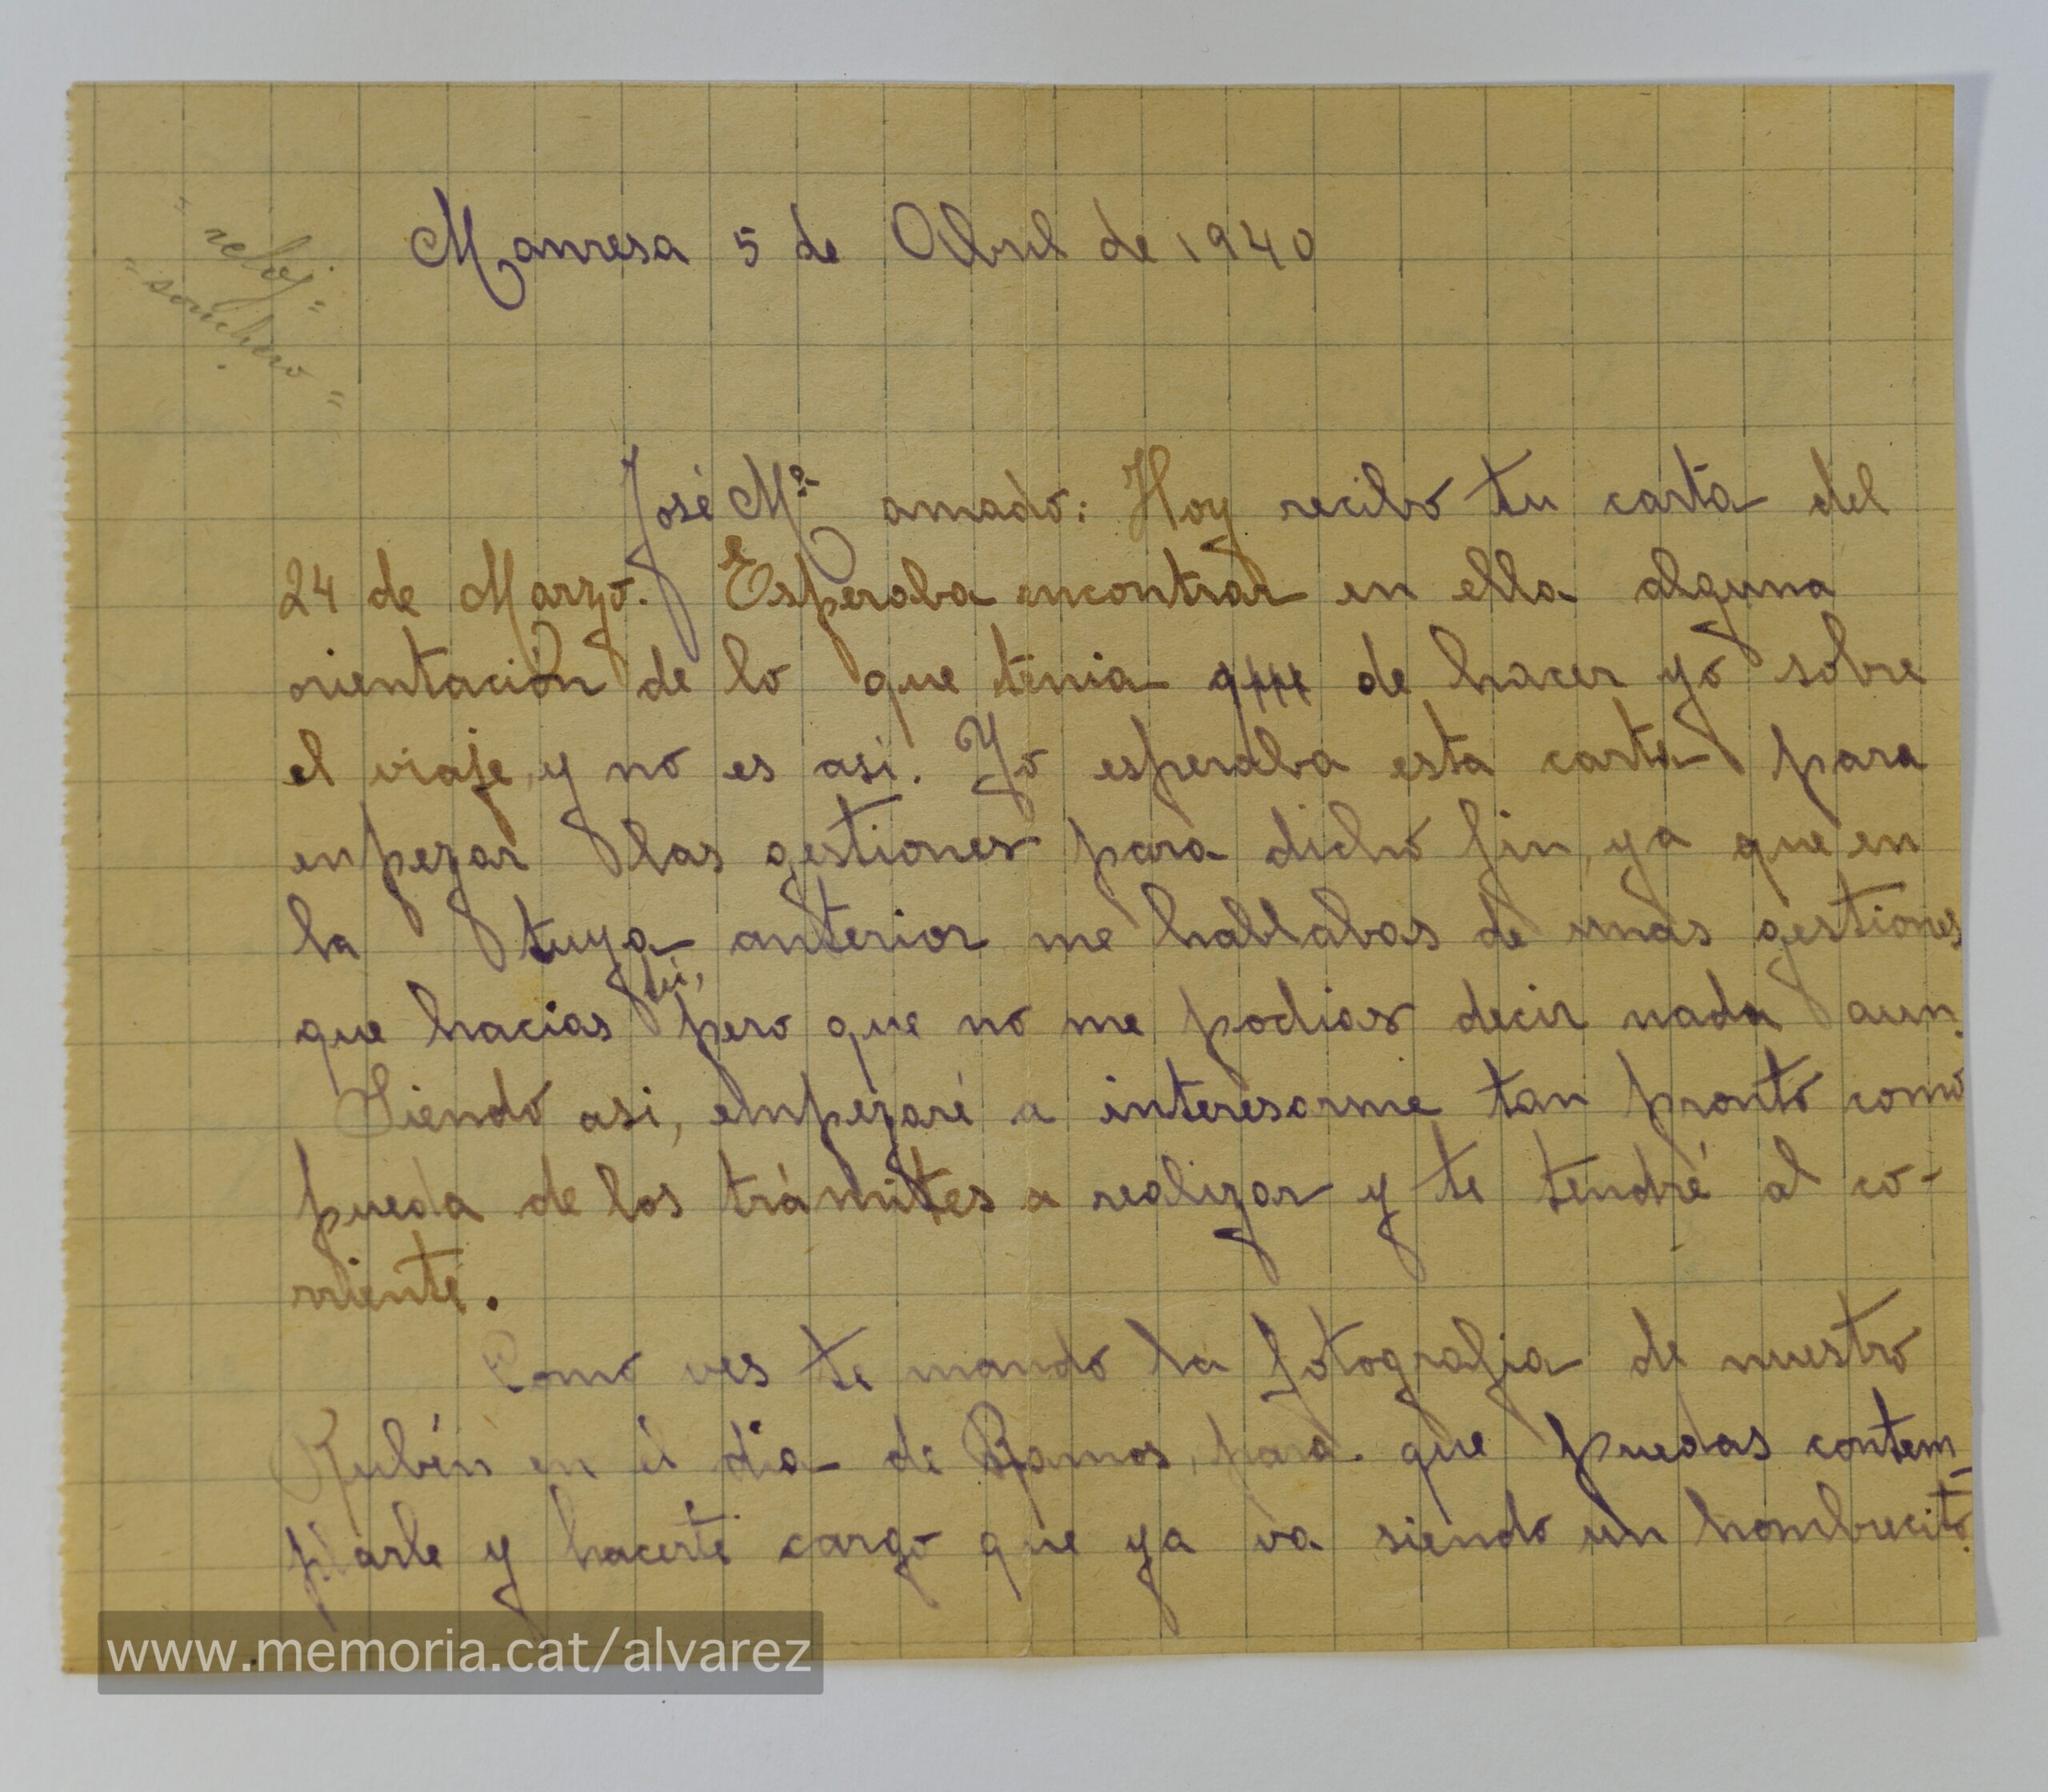 "reloj"
"sombrero"
Manresa 5 de Abril de 1940
José Mª amado: Hoy recibo tu carta del
24 de Marzo. Esperaba encontrar en ella alguna
orientación de lo que tenia que de hacer yo sobre
el viaje, y no es asi. Yo esperaba esta carta para
enpezar las gestiones para dicho fin, ya que en
la tuya anterior me hablabas de unas gestiones
que hacias tú, pero que no me podias decir nada aun.
Siendo asi, empezaré a interesarme tan pronto como
pueda de los trámites a realizar y te tendré al co-
rriente.
Como ves te mando la fotografia de nuestro
Rubén en el dia de Ramos, para que puedas contem-
plarle y hacerte cargo que ya va siendo un hombrecito.
www.memoria.cat/alvarez